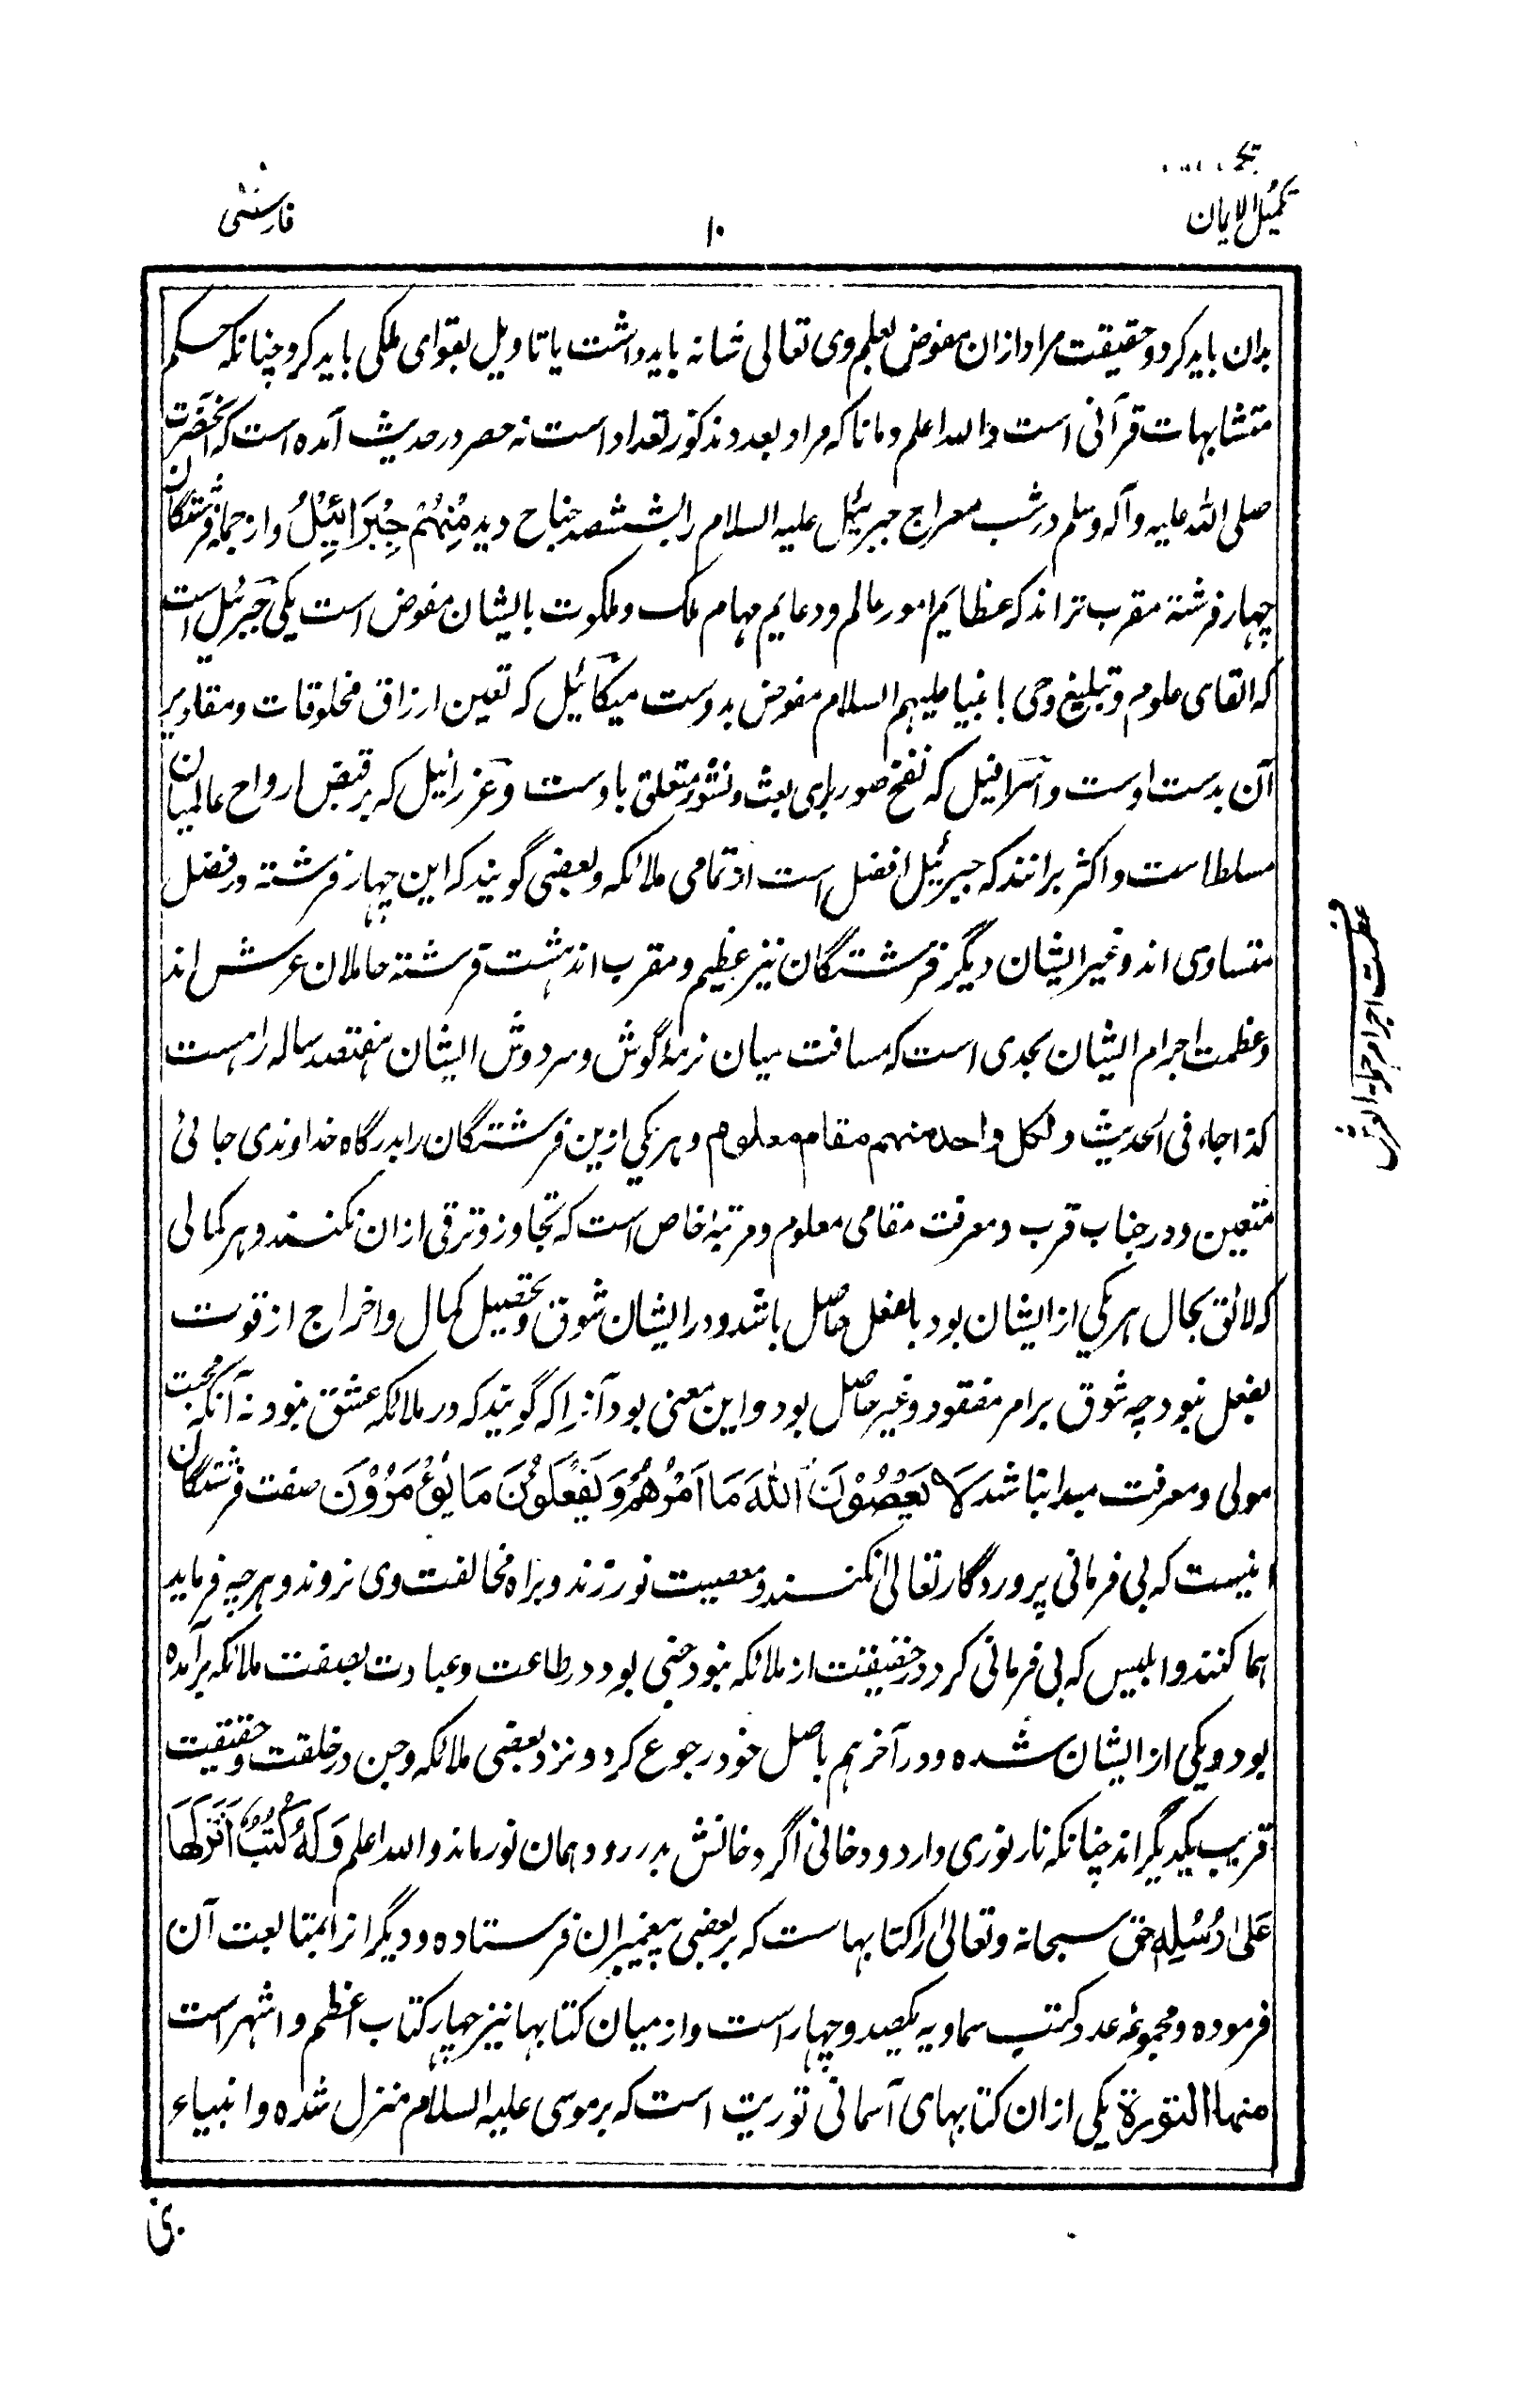 تکمیل الایمان
۱۰
فارسی
بدان باید کرد و حقیقت مراد ازان مفوض بعلم وی تعالی شانه باید داشت یا تاویل بقوای ملکی باید کرد چنانکه حکم
متشابهات قرآنی است والله اعلم و مانا که مراد بعدد مذکور تعداد است نه حصر در حدیث آمده است که آنحضرت
صلی الله علیه وآله وسلم در شب معراج جبرئیل علیه السلام را بششصد جناح دید مِنْهُمْ جِبْرَائِیْلُ و از جمله فرشتگان
چهار فرشته مقرب تر اند که عظایم امور عالم و دعایم مهام ملک و ملکوت بایشان مفوض است یکی جبرئیل است
که القای علوم و تبلیغ وحی با نبیا علیهم السلام مفوض بدوست میکائیل که تعین ارزاق مخلوقات و مقادیر
آن بدست اوست و اسرافیل که نفخ صور برای بعث و نشور متعلق باوست و عزرائیل که بر قبض ارواح عالمیان
مسلط است و اکثر برانند که جبرئیل افضل است از تمامی ملائکه و بعضی گویند که این چهار فرشته در فضل
متساوی اند و غیر ایشان دیگر فرشتگان نیز عظیم و مقرب اند هشت فرشته حاملان عرش اند
و عظمت اجرام ایشان بحدی است که مسافت میان نرمهٔ گوش و سر دوش ایشان هفتصد ساله راهست
کذا جاء فی الحدیث ولکل واحد منهم مقام معلوم و هر یکی ازین فرشتگان را بدرگاه خداوندی جائی
متعین و در جناب قرب و معرفت مقامی معلوم و مرتبهٔ خاص است که تجاوز و ترقی ازان نکنند و هر کمالی
که لائق بحال هر یکی از ایشان بود بالفعل حاصل باشد و در ایشان شوق و تحصیل کمال و اخراج از قوت
بفعل نبود چه شوق بر امر مفقود و غیر حاصل بود و این معنی بود آنرا که گویند که در ملائکه عشق نبود نه آنکه محبت
مولی و معرفت مبدا نباشد لَا یَعْصُوْنَ اللّٰهَ مَا اَمَرَهُمْ وَ یَفْعَلُوْنَ مَا یُؤْمَرُوْنَ صفت فرشتگان
نیست که بی فرمانی پروردگار تعالی نکنند و معصیت نورزند و براه مخالفت وی نروند و هرچه فرماید
هما کنند و ابلیس که بی فرمانی کرد در حقیقت از ملائکه نبود جنی بود در طاعت و عبادت بصفت ملائکه برآمده
بود و یکی از ایشان شده و در آخر هم باصل خود رجوع کرد و نزد بعضی ملائکه و جن در خلقت و حقیقت
قریب یکدیگر اند چنانکه نار نوری دارد و دخانی اگر دخانش بدر رود همان نور ماند والله اعلم وَلَهُ کُتُبٌ اَنْزَلَهَا
عَلٰی رُسُلِهٖ حق سبحانه و تعالی را کتابهاست که بر بعضی پیغمبران فرستاده و دیگرانرا بمتابعت آن
فرموده و مجموعه عدد کتب سماویه یکصد و چهار است و از میان کتابها نیز چهار کتاب اعظم و اشهر است
منها التورة یکی ازان کتابهای آسمانی توریت است که بر موسی علیه السلام منزل شده و انبیاء
عظمت اجرام حملة العرش